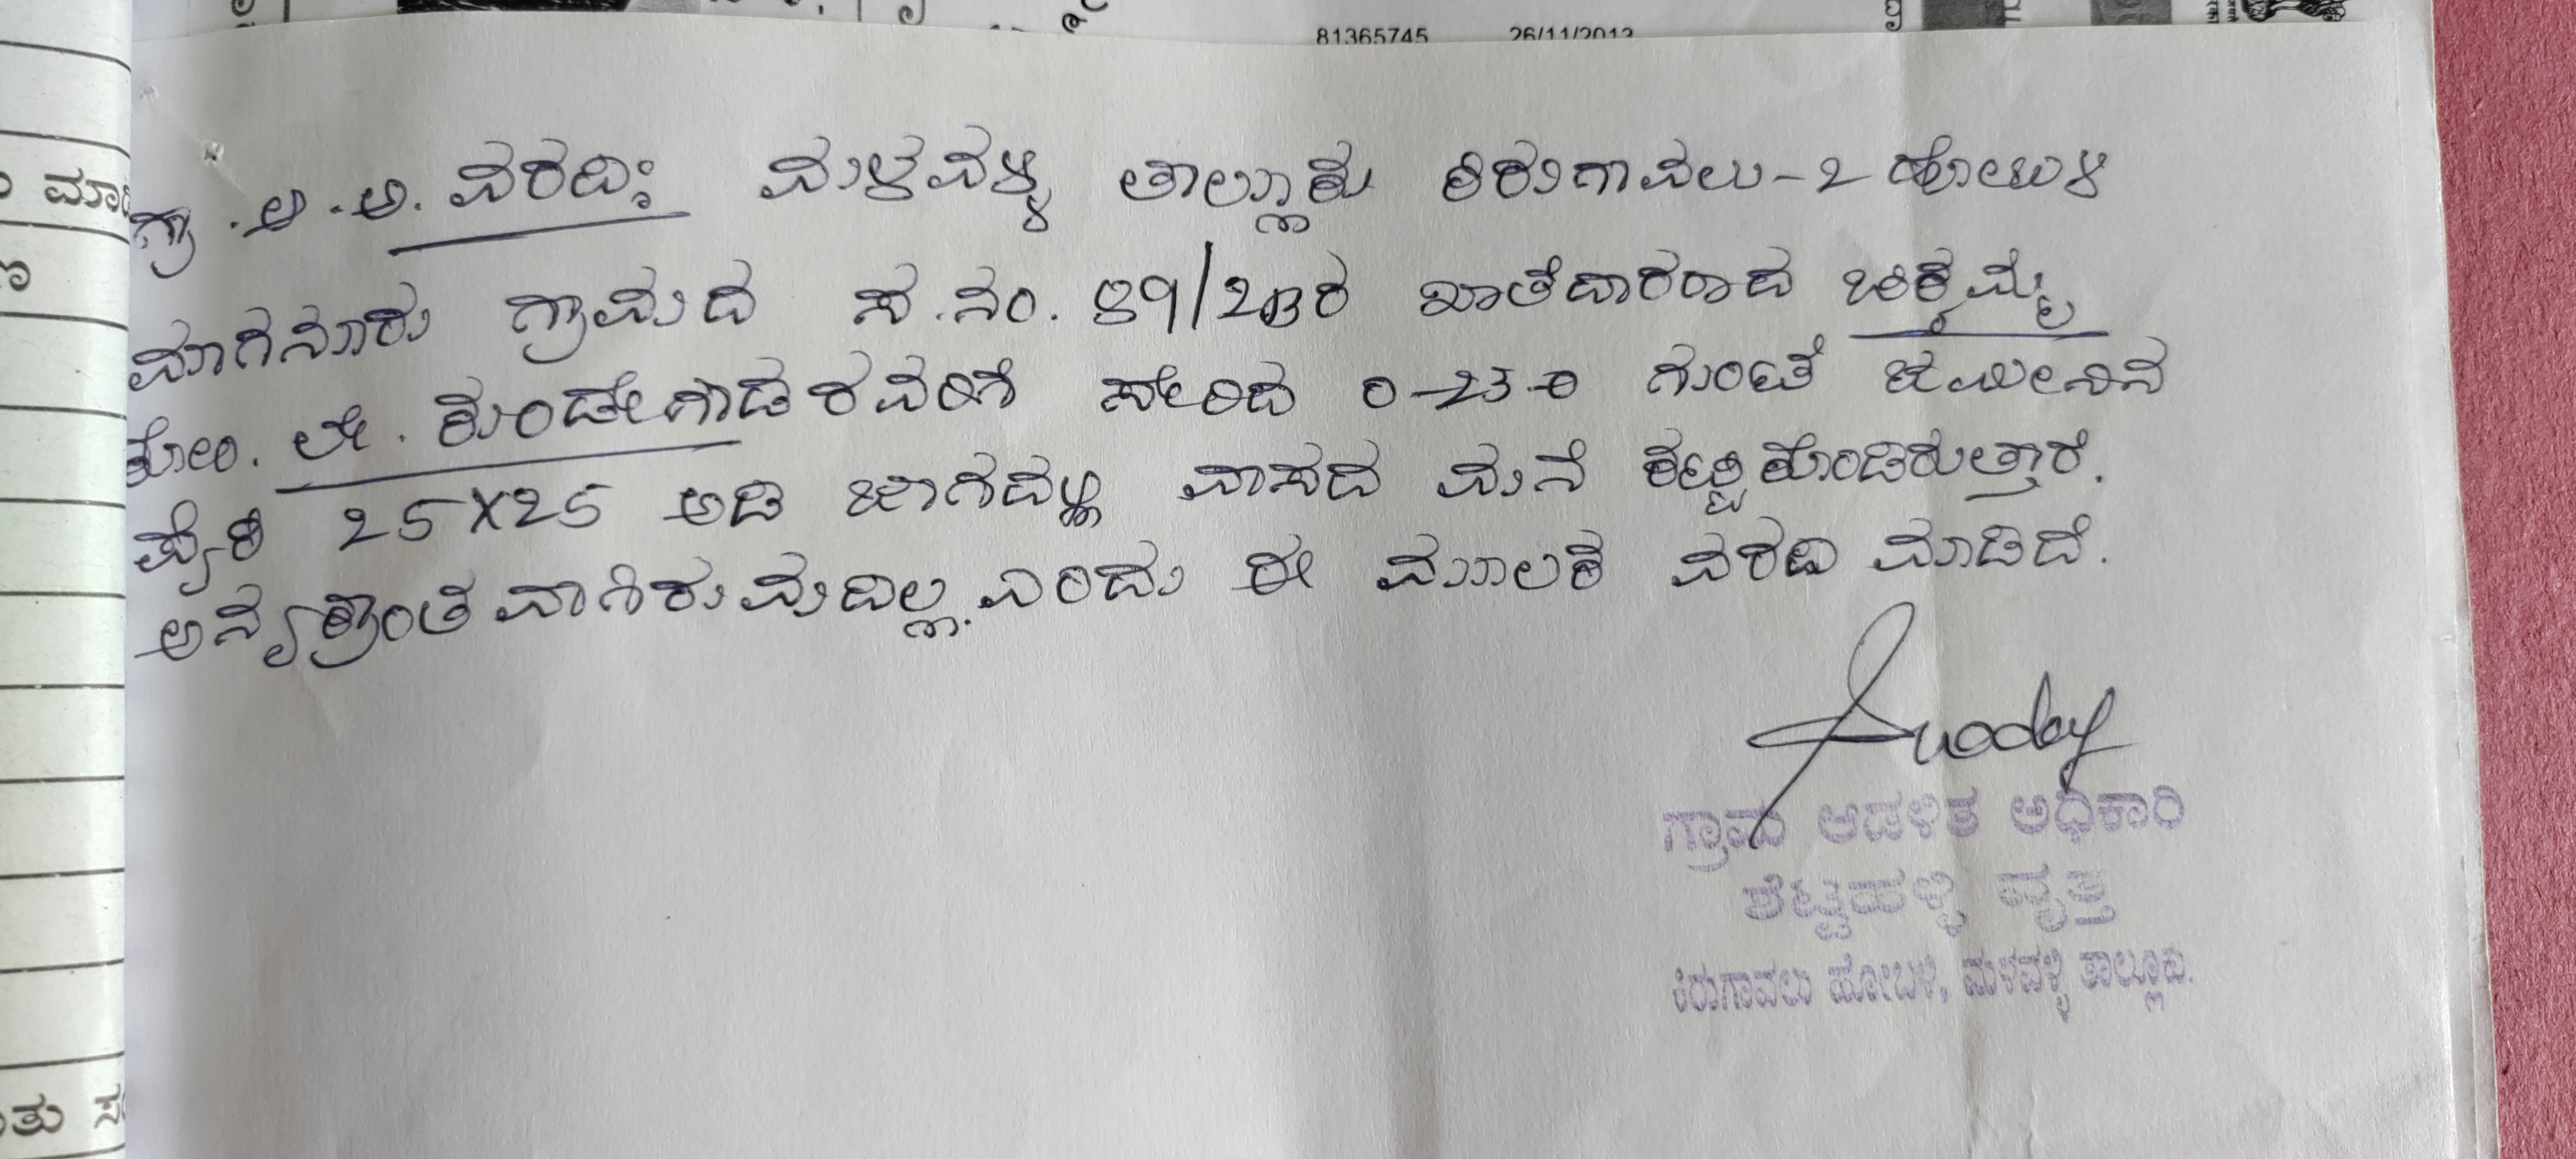 81365745 26/11/2013
ಮಾ
ಗ್ರಾ.ಆ.ಅ. ವರದಿ: ಮಳವಳ್ಳಿ ತಾಲ್ಲೂಕು ಕಿರುಗಾವಲು-2 ಹೋಬಳಿ
ಮಾಗನೂರು ಗ್ರಾಮದ ಸ.ನಂ. 89/2ಬಿ3ರ ಖಾತೆದಾರರಾದ ಚಿಕ್ಕಮ್ಮ
ಕೋಂ. ಲೇ. ಕುಂಡೇಗೌಡರವರಿಗೆ ಸೇರಿದ 0-23-0 ಗುಂಟೆ ಜಮೀನಿನ
ಪೈಕಿ 25X25 ಅಡಿ ಜಾಗದಲ್ಲಿ ವಾಸದ ಮನೆ ಕಟ್ಟಿಕೊಂಡಿರುತ್ತಾರೆ.
ಅನ್ಯಕ್ರಾಂತವಾಗಿರುವುದಿಲ್ಲ. ಎಂದು ಈ ಮೂಲಕ ವರದಿ ಮಾಡಿದೆ.
ಗ್ರಾಮ ಆಡಳಿತ ಅಧಿಕಾರಿ
ಶೆಟ್ಟಹಳ್ಳಿ ವೃತ್ತ
ಕಿರುಗಾವಲು ಹೋಬಳಿ, ಮಳವಳ್ಳಿ ತಾಲ್ಲೂಕು.